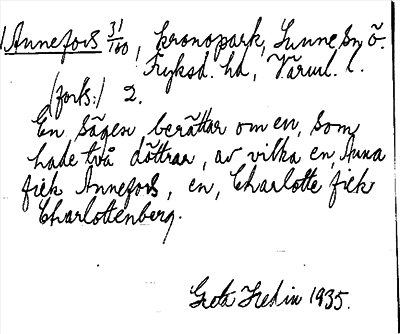 1. Annefors 31/180, kronopark, Sunne sn ö.
Fryksd. hd, Värml. l.
(forts.) 2.
En sägen berättar om en, som
hade två döttrar, av vilka en, Anna
fick Annefors, en, Charlotte fick
Charlottenberg.
Greta Hedin 1935.